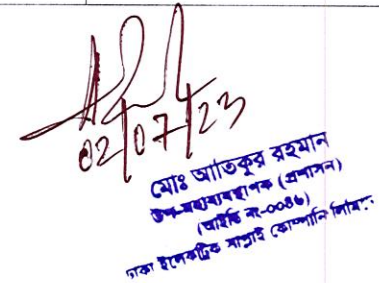 02/07/23
মোঃ আতিকুর রহমান
উপ-মহাব্যবস্থাপক (প্রশাসন)
(আইডি নং-০০৪৬)
ঢাকা ইলেকট্রিক সাপ্লাই কোম্পানি লিমিঃ